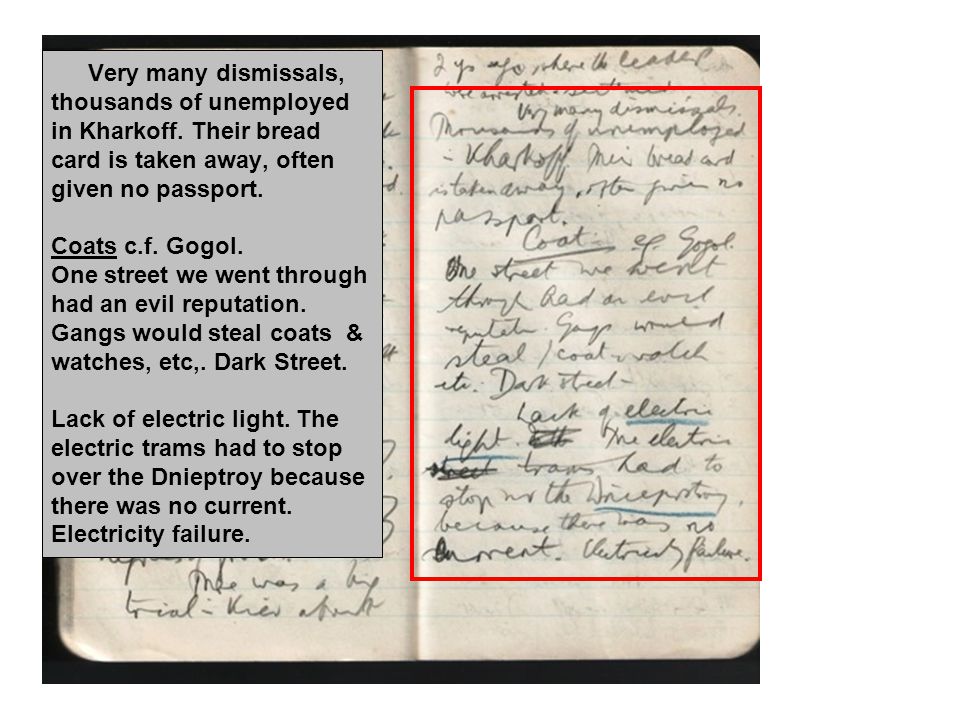 Very many dismissals,
thousands of unemployed
in Kharkoff. Their bread
card is taken away, often
given no passport.
Coats c.f. Gogol.
One street we went through
had an evil reputation.
Gangs would steal coats &
watches, etc,. Dark Street.
Lack of electric light. The
electric trams had to stop
over the Dnieptroy because
there was no current.
Electricity failure.
There was a big
trial - Kiev about
2 yrs ago, where the leader
were arrested & sentenced
Very many dismissals.
Thousands of unemployed
- Kharkoff. Their bread card
is taken away, often given no
passport.
Coats cf Gogol.
One street we went
through had an evil
reputation. Gangs would
steal / coat - watch
etc. Dark street -
Lack of electric
light. The electric
street trams had to
stop the Dnieperstroy,
because there was no
current. Electricity failure.